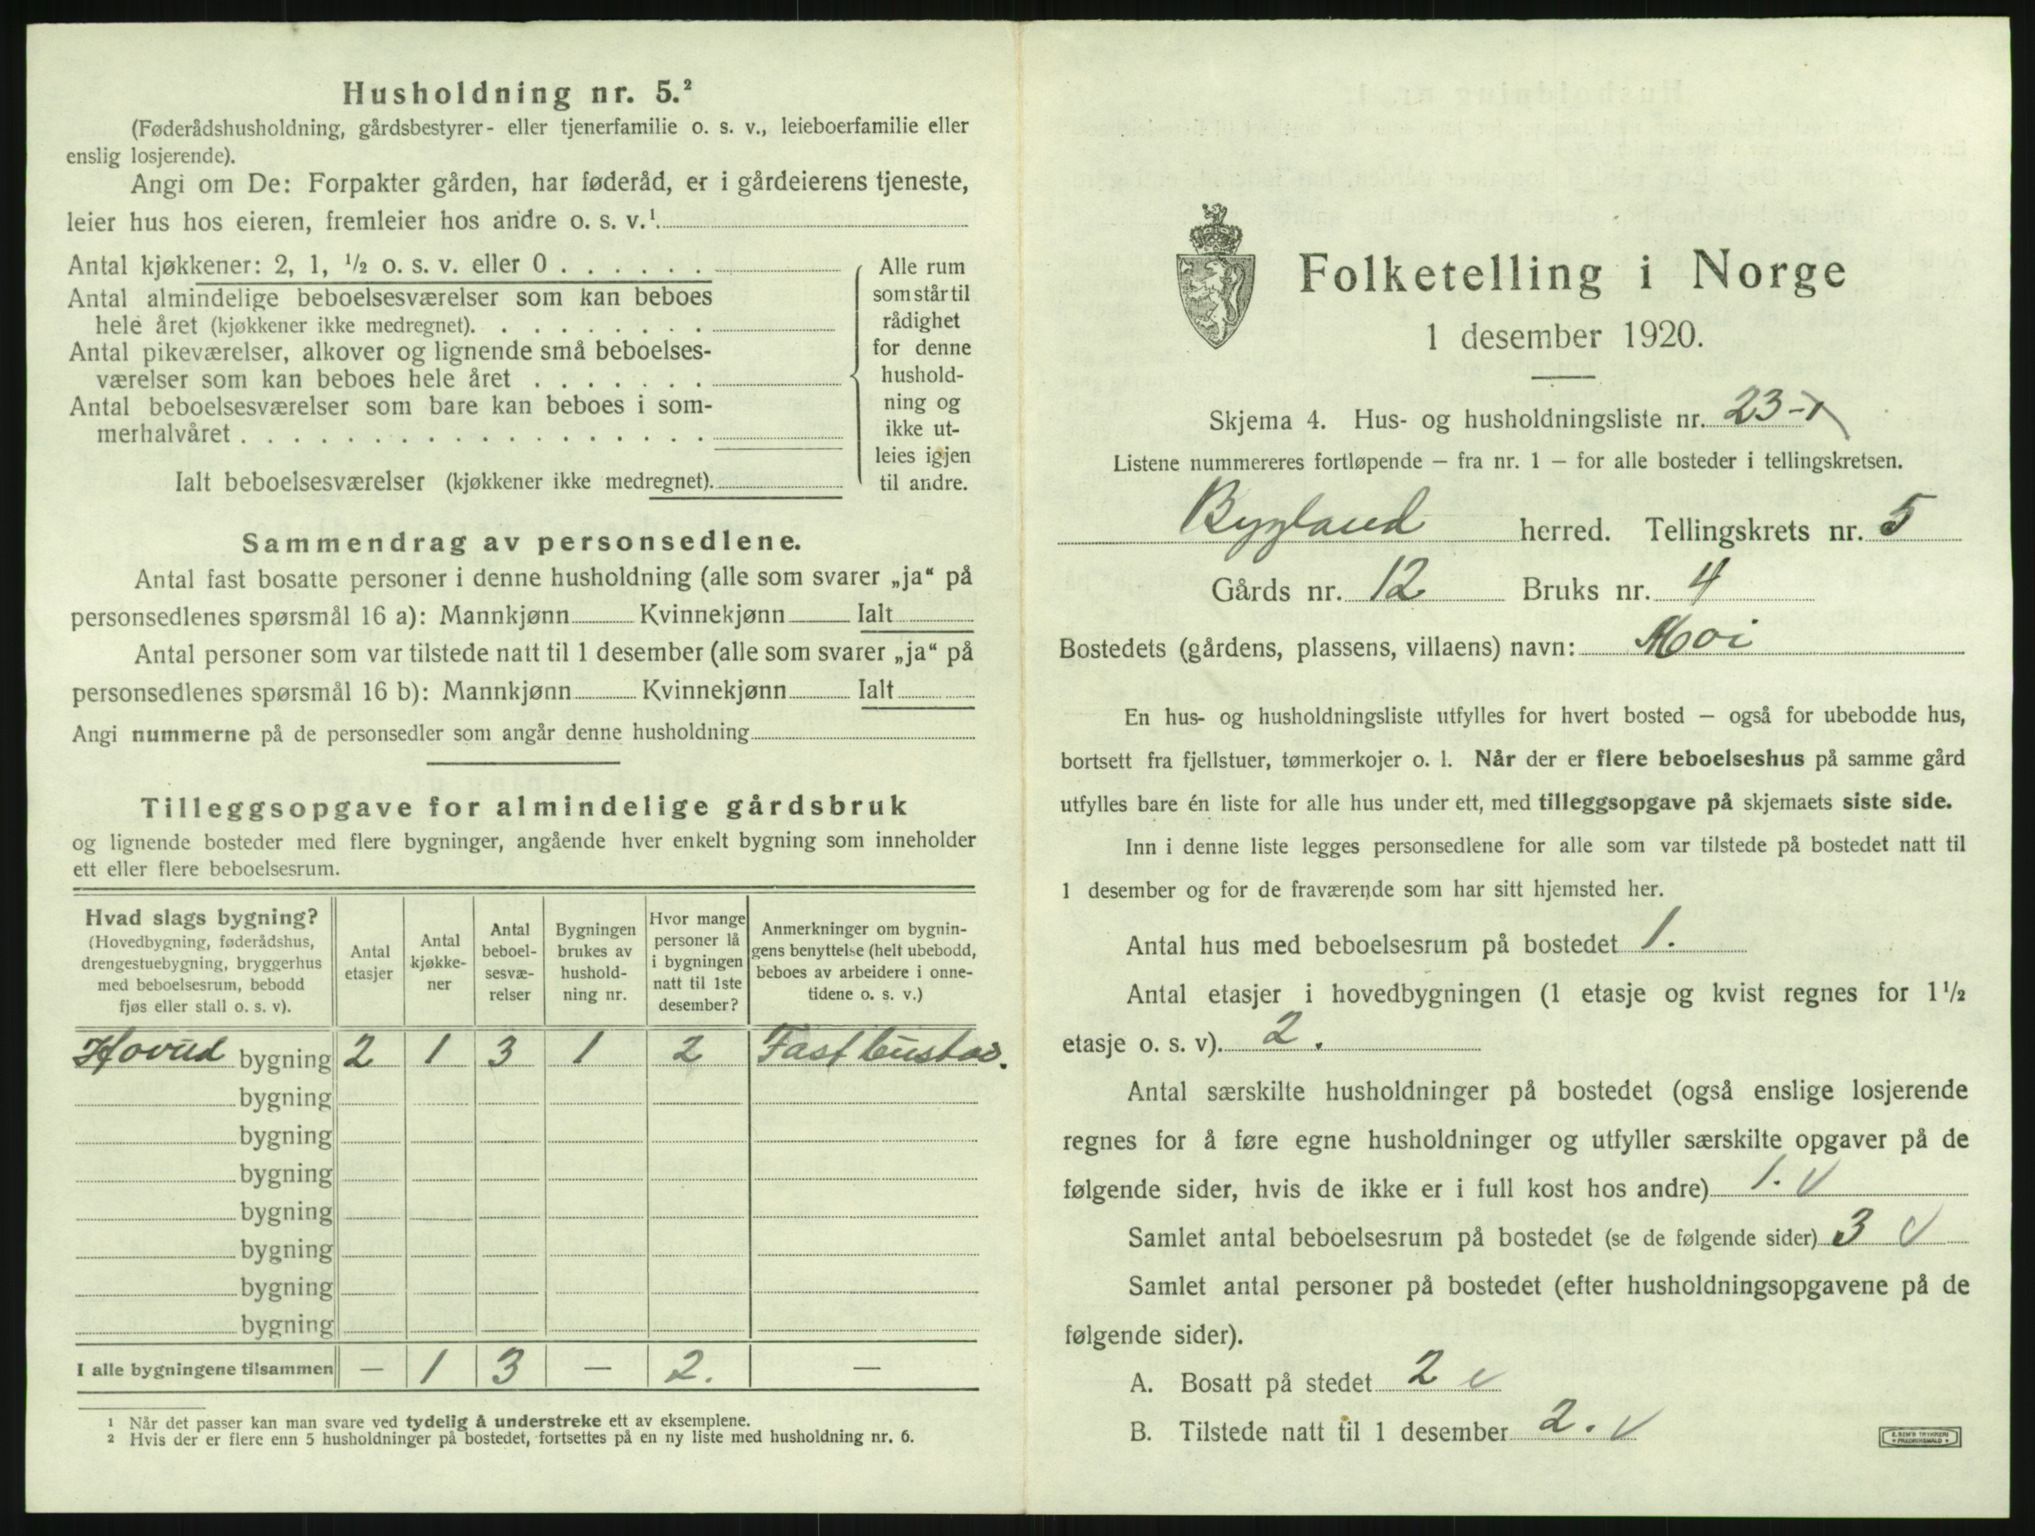 Husholdning nr. 5.²
(Føderådshusholdning, gårdsbestyrer- eller tjenerfamilie o. s. v., leieboerfamilie eller
enslig losjerende).
Angi om De: Forpakter gården, har føderåd, er i gårdeierens tjeneste,
leier hus hos eieren, fremleier hos andre o. s. v.¹
Antal kjøkkener: 2, 1, ½ o. s. v. eller 0 . . . . . .
Antal almindelige beboelsesværelser som kan beboes
hele året (kjøkkener ikke medregnet). . . . . . . . .
Antal pikeværelser, alkover og lignende små beboelses-
værelser som kan beboes hele året . . . . . . .
Antal beboelsesværelser som bare kan beboes i som-
merhalvåret . . . . . . . . . . . . . . . . . .
Ialt beboelsesværelser (kjøkkener ikke medregnet).
Alle rum
som står til
rådighet
for denne
hushold-
ning og
ikke ut-
leies igjen
til andre.
Sammendrag av personsedlene.
Antal fast bosatte personer i denne husholdning (alle som svarer „ja“ på
personsedlenes spørsmål 16 a): Mannkjønn Kvinnekjønn Ialt
Antal personer som var tilstede natt til 1 desember (alle som svarer „ja“ på
personsedlenes spørsmål 16 b): Mannkjønn Kvinnekjønn Ialt
Angi nummerne på de personsedler som angår denne husholdning
Tilleggsopgave for almindelige gårdsbruk
og lignende bosteder med flere bygninger, angående hver enkelt bygning som inneholder
ett eller flere beboelsesrum.
Hvad slags bygning?
(Hovedbygning, føderådshus,
drengestuebygning, bryggerhus
med beboelsesrum, bebodd
fjøs eller stall o. s. v).
Antal
etasjer
Antal
kjøkke-
ner
Antal
beboel-
sesvæ-
relser
Bygningen
brukes av
hushold-
ning nr.
Hvor mange
personer lå
i bygningen
natt til 1ste
desember?
Anmerkninger om bygnin-
gens benyttelse (helt ubebodd,
beboes av arbeidere i onne-
tidene o. s. v.)
Hovud bygning 2 1 3 1 2 Fast bustad.
bygning
bygning
bygning
bygning
bygning
bygning
bygning
I alle bygningene tilsammen — 1 3 — 2. —
¹ Når det passer kan man svare ved tydelig å understreke ett av eksemplene.
² Hvis der er flere enn 5 husholdninger på bostedet, fortsettes på en ny liste med husholdning nr. 6.
Folketelling i Norge
1 desember 1920.
Skjema 4. Hus- og husholdningsliste nr. 23-1
Listene nummereres fortløpende — fra nr. 1 — for alle bosteder i tellingskretsen.
Bygland herred. Tellingskrets nr. 5
Gårds nr. 12 Bruks nr. 4
Bostedets (gårdens, plassens, villaens) navn: Moi
En hus- og husholdningsliste utfylles for hvert bosted — også for ubebodde hus,
bortsett fra fjellstuer, tømmerkojer o. l. Når der er flere beboelseshus på samme gård
utfylles bare én liste for alle hus under ett, med tilleggsopgave på skjemaets siste side.
Inn i denne liste legges personsedlene for alle som var tilstede på bostedet natt til
1 desember og for de fraværende som har sitt hjemsted her.
Antal hus med beboelsesrum på bostedet 1.
Antal etasjer i hovedbygningen (1 etasje og kvist regnes for 1½
etasje o. s. v). 2.
Antal særskilte husholdninger på bostedet (også enslige losjerende
regnes for å føre egne husholdninger og utfyller særskilte opgaver på de
følgende sider, hvis de ikke er i full kost hos andre) 1. v
Samlet antal beboelsesrum på bostedet (se de følgende sider) 3 v
Samlet antal personer på bostedet (efter husholdningsopgavene på de
følgende sider).
A. Bosatt på stedet 2 v
B. Tilstede natt til 1 desember 2. v